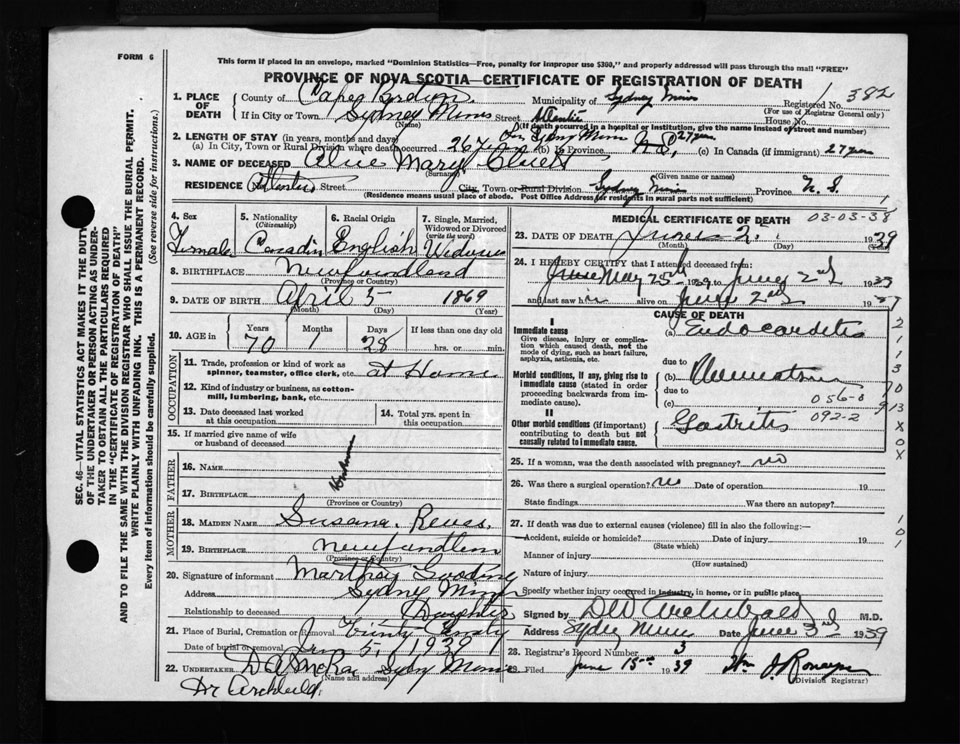 FORM 6
This form if placed in an envelope, marked "Dominion Statistics—Free, penalty for improper use $300," and properly addressed will pass through the mail "FREE"
PROVINCE OF NOVA SCOTIA—CERTIFICATE OF REGISTRATION OF DEATH
1. PLACE OF DEATH County of Cape Breton Municipality of Sydney Mines Registered No. 382
(For use of Registrar General only)
If in City or Town Sydney Mines Street Atlantic House No.
(Name) (If death occurred in a hospital or institution, give the name instead of street and number)
2. LENGTH OF STAY (in years, months and days)
(a) In City, Town or Rural Division where death occurred 26 (b) In Province 27 years (c) In Canada (if immigrant) 27 years
3. NAME OF DECEASED Alice Mary
(Surname) (Given name or names)
RESIDENCE Atlantic Street City, Town or Rural Division Sydney Mines Province N. S.
(Residence means usual place of abode. Post Office Address for residents in rural parts not sufficient)
4. Sex Female
5. Nationality (Citizenship) Canadin
6. Racial Origin English
7. Single, Married, Widowed or Divorced (write the word) Widow
8. BIRTHPLACE Newfoundland
(Province or Country)
9. DATE OF BIRTH April 5 1869
(Month) (Day) (Year)
10. AGE in Years 70 Months 1 Days 28 If less than one day old hrs. or min.
OCCUPATION
11. Trade, profession or kind of work as spinner, teamster, office clerk, etc. at Home
12. Kind of industry or business, as cotton-mill, lumbering, bank, etc.
13. Date deceased last worked at this occupation
14. Total yrs. spent in this occupation
15. If married give name of wife or husband of deceased
FATHER
16. NAME
Unknown
17. BIRTHPLACE
(Province or Country)
MOTHER
18. MAIDEN NAME Susana Reves
19. BIRTHPLACE
(Province or Country)
20. Signature of informant Martha
Address Sydney Mines
Relationship to deceased Daughter
21. Place of Burial, Cremation or Removal Trinity
Date of burial or removal June 5, 1939
22. UNDERTAKER Sydney Mines
(Name and address)
Dr Archibald
MEDICAL CERTIFICATE OF DEATH 03-03-38
23. DATE OF DEATH June 2 1939
(Month) (Day) (Year)
24. I HEREBY CERTIFY that I attended deceased from:
May 25th 1939 to June 2nd 1939
and last saw h alive on June 2nd 1937
CAUSE OF DEATH
I
Immediate cause
Give disease, injury or complication which caused death, not the mode of dying, such as heart failure, asphyxia, asthenia, etc.
(a) Endocarditis
due to
Morbid conditions, if any, giving rise to immediate cause (stated in order proceeding backwards from immediate cause).
(b)
due to 056-0
(c) 092-2
II
Other morbid conditions (if important) contributing to death but not causally related to immediate cause.
Gastritis
25. If a woman, was the death associated with pregnancy? no
26. Was there a surgical operation? no Date of operation 19
State findings Was there an autopsy?
27. If death was due to external causes (violence) fill in also the following:—
Accident, suicide or homicide? Date of injury 19
(State which)
Manner of injury
(How sustained)
Nature of injury
Specify whether injury occurred in industry, in home, or in public place
Signed by DW Archibald M.D.
Address Sydney Mines Date June 3rd 1939
28. Registrar's Record Number 3
Filed June 15th 1939
(Division Registrar)
SEC. 46—VITAL STATISTICS ACT MAKES IT THE DUTY OF THE UNDERTAKER OR PERSON ACTING AS UNDERTAKER TO OBTAIN ALL THE PARTICULARS REQUIRED IN THE "CERTIFICATE OF REGISTRATION OF DEATH" AND TO FILE THE SAME WITH THE DIVISION REGISTRAR WHO SHALL ISSUE THE BURIAL PERMIT.
WRITE PLAINLY WITH UNFADING INK. THIS IS A PERMANENT RECORD.
Every item of information should be carefully supplied. (See reverse side for instructions.)